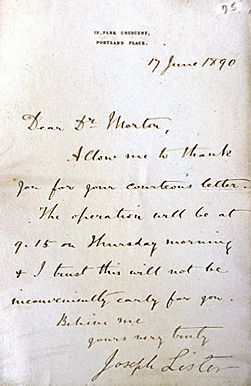 75.
12, PARK CRESCENT,
PORTLAND PLACE.
17 June 1890
Dear Dr. Morton,
Allow me to thank
you for your courteous letter.
The operation will be at
9.15 on Thursday morning
& I trust this will not be
inconveniently early for you.
Believe me
yours very truly
Joseph Lister